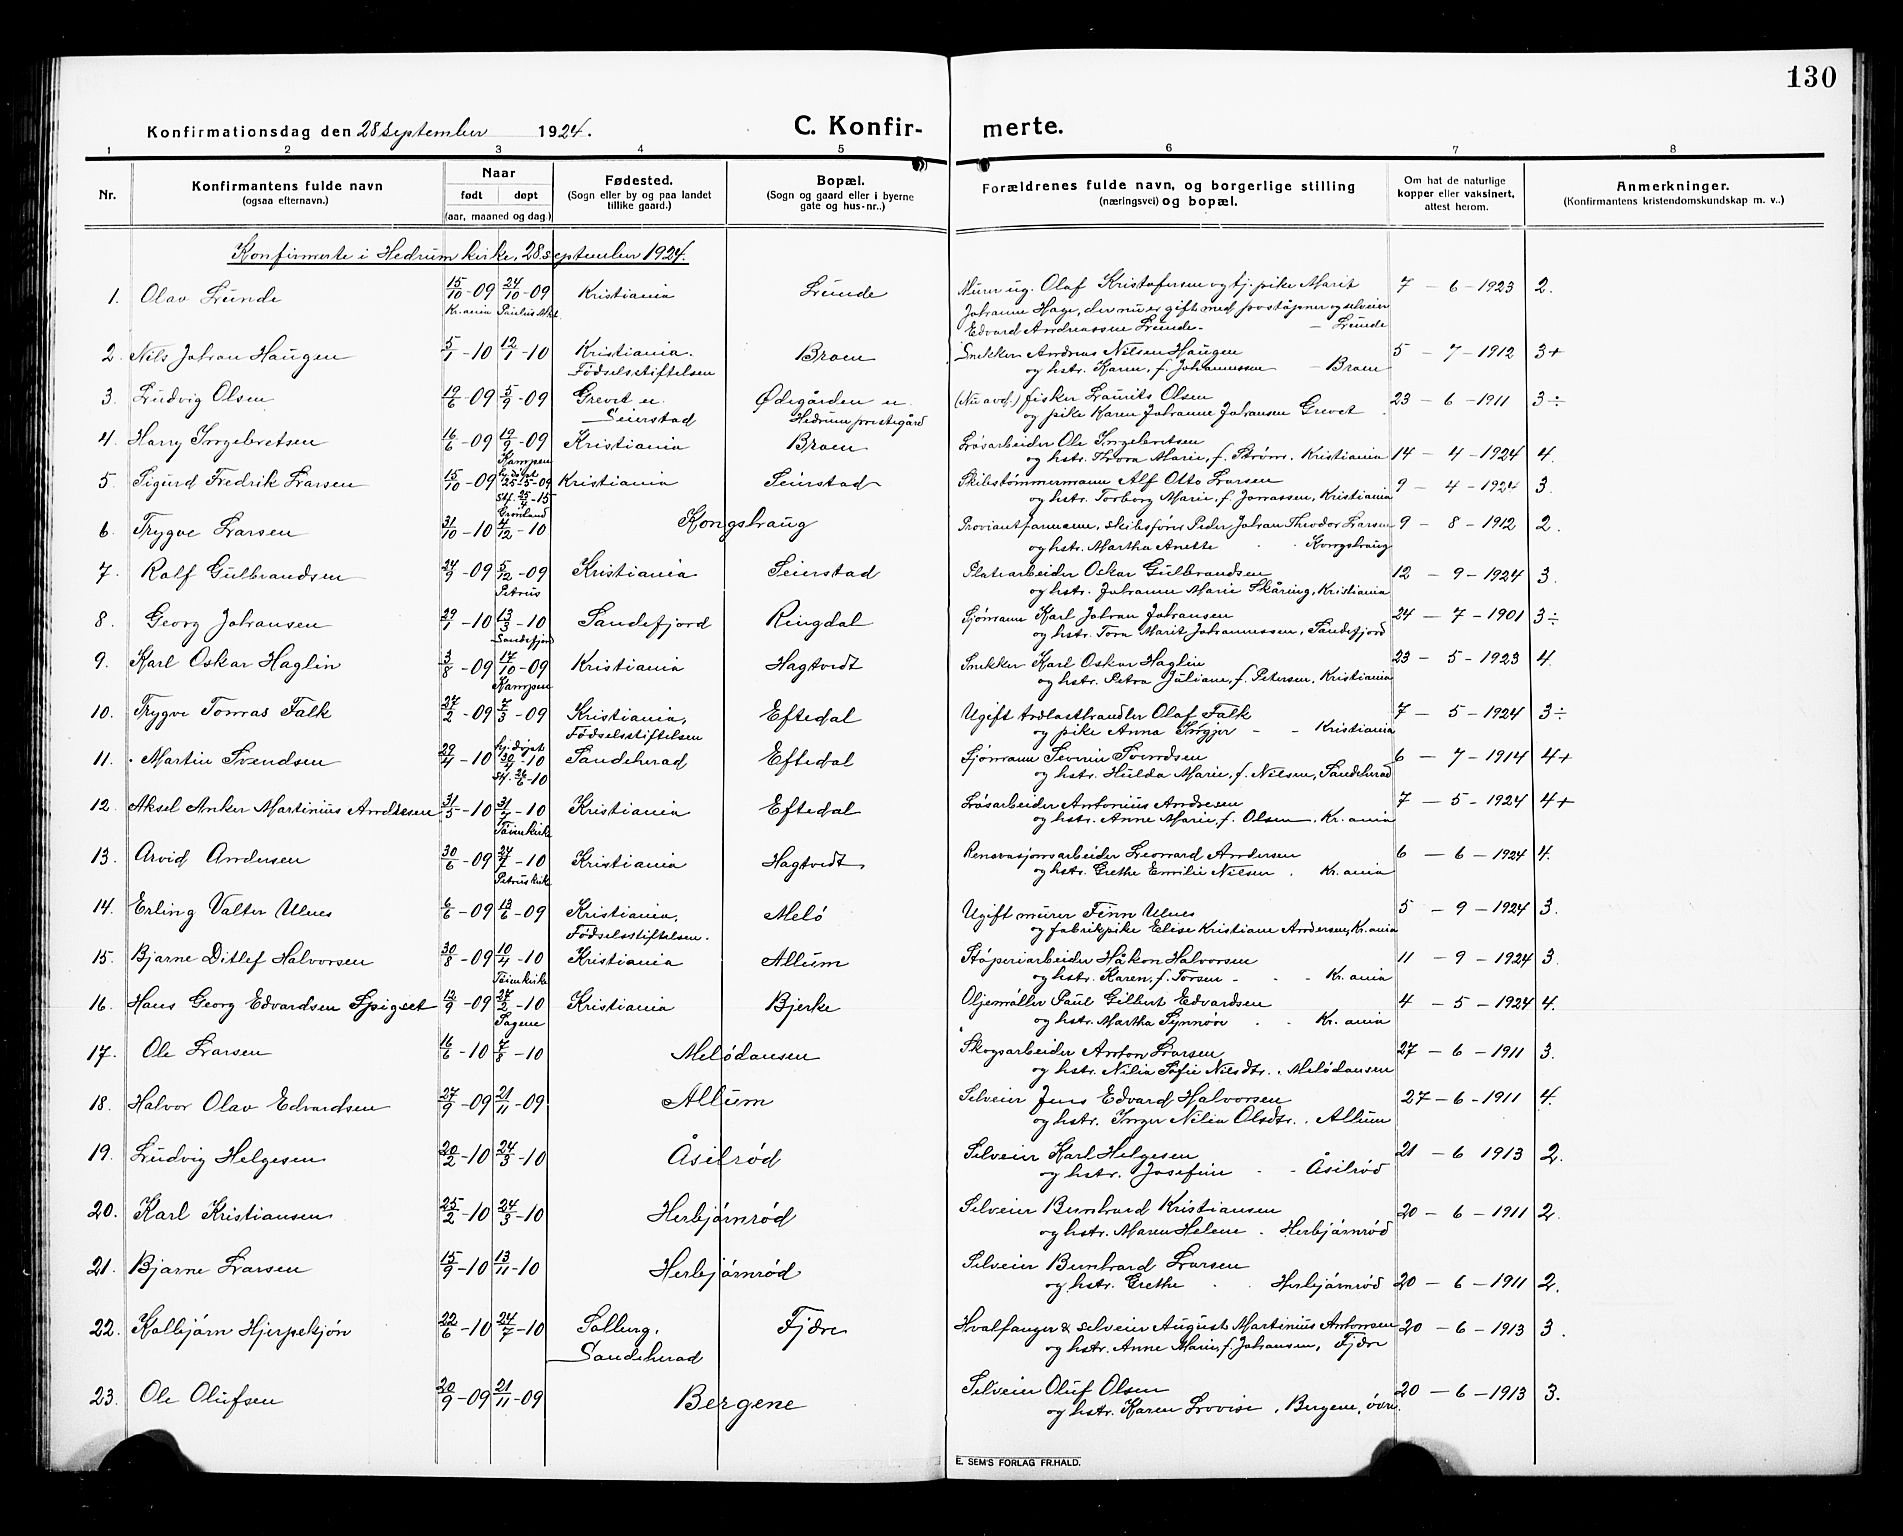 130
Konfirmationsdag den 28 september 1924. C. Konfir- merte.
1 2 3 4 5 6 7 8
Nr. Konfirmantens fulde navn (ogsaa efternavn.) Naar født døpt (aar, maaned og dag.) Fødested. (Sogn eller by og paa landet tillike gaard.) Bopæl. (Sogn og gaard eller i byerne gate og hus-nr..) Forældrenes fulde navn, og borgerlige stilling (næringsvei) og bopæl. Om hat de naturlige kopper eller vaksinert, attest herom. Anmerkninger. (Konfirmantens kristendomskundskap m. v..)
Konfirmerte i Hedrum kirke, 28. september 1924.
1. Olav Lunde 15/10-09 24/10-09 Kristiania Lunde Murer ug. Olaf Kristofersen og tj. pike Marit 7 - 6 - 1923 2.
Kr.ania Paulus Johanne Hage, der nu er gift med poståpner og selveier
Edvard Andreassen Lunde - - Lunde
2. Nils Johan Haugen 5/1-10 12/1-10 Kristiania. Braen Snekker Andreas Nilsen Haugen 5 - 7 - 1912 3+
Fødselsstiftelsen og hstr. Karen, f. Johannessen - Braen
3. Ludvig Olsen 19/6-09 5/9-09 Grevet u. Ødegården u. (Nu avd.) fisker Laurits Olsen 23 - 6 - 1911 3÷
Seierstad Hedrum prestegård og pike Karen Johanne Johansen Grevet
4. Harry Ingebretsen 16/6-09 19/9-09 Kristiania Braen Løsarbeider Ole Ingebretsen
Kampen og hstr. Thora Marie, f. Strøm. Kristiania 14 - 4 - 1924 4.
5. Sigurd Fredrik Larsen 15/10-09 hj. døpt 25-5-09 Kristiania Seierstad Skibstømmermann Alf Otto Larsen 9 - 4 - 1924 3.
st. 25/4-15 Grønland og hstr. Torborg Marie, f. Jonassen, Kristiania
6. Trygve Larsen 31/10-10 4/12-10 Kongshaug Proviantformann, skibsfører Peder Johan Theodor Larsen 9 - 8 - 1912 2.
og hstr. Martha Anette - - Kongshaug
7. Ralf Gulbrandsen 24/9-09 5/12-09 Kristiania Seierstad Platearbeider Oskar Gulbrandsen 12 - 9 - 1924 3.
Petrus og hstr. Johanne Marie Skåring, Kristiania
8. Georg Johansen 29/1-10 13/3-10 Sandefjord Ringdal Sjømann Karl Johan Johansen 24 - 7 - 1901 3÷
Sandefjord og hstr. Tora Marit Johannessen, Sandefjord
9. Karl Oskar Haglin 3/8-09 17/10-09 Kristiania Hagtvedt Snekker Karl Oskar Haglin 23 - 5 - 1923 4.
Kampen og hstr. Petra Juliane, f. Petersen, Kristiania
10. Trygve Tomas Falk 27/2-09 7/3-09 Kristiania, Eftedal Ugift ardlasthandler Olaf Falk 7 - 5 - 1924 3÷
Fødselsstiftelsen og pike Anna Ingjer - - Kristiania
11. Martin Svendsen 29/4-10 hj. døpt 30/4-10 Sandeherad Eftedal Sjømann Severin Svendsen 6 - 7 - 1914 4+
st. 26/6-10 og hstr. Hulda Marie, f. Nilsen, Sandeherad
12. Aksel Anker Martinius Andresen 31/5-10 31/7-10 Kristiania Eftedal Løsarbeider Antonius Andresen 7 - 5 - 1924 4+
Tøienkirke og hstr. Anne Marie, f. Olsen. Kr.ania
13. Arvid Andersen 30/6-09 24/7-10 Kristiania Hagtvedt Renovasjonsarbeider Leonard Andersen 6 - 6 - 1924 4.
Petruskirke og hstr. Grethe Emilie Nilsen. Kr.ania
14. Erling Valter Ulnes 6/6-09 13/6-09 Kristiania, Melø Ugift murer Finn Ulnes 5 - 9 - 1924 3.
Fødselsstiftelsen. og fabrikpike Elise Kristiane Andersen, Kr.ania
15. Bjarne Ditlef Halvorsen 30/8-09 10/4-10 Kristiania Allum Støperiarbeider Håkon Halvorsen 11 - 9 - 1924 3.
Tøienkirke og hstr. Karen, f. Torsen - - Kr.ania
16. Hans Georg Edvardsen Spigset 12/9-09 27/2-10 Kristiania Bjerke Oljemøller Paul Gilbert Edvardsen 4 - 5 - 1924 4.
Sagene og hstr. Martha Synnøve - - Kr.ania
17. Ole Larsen 16/6-10 7/8-10 Melødansen Skogsarbeider Anton Larsen 27 - 6 - 1911 3.
og hstr. Nilia Sofie Nilsdtr. . Melødansen
18. Halvor Olav Edvardsen 27/9-09 21/11-09 Allum Selveier Jens Edvard Halvorsen 27 - 6 - 1911 4.
og hstr. Inger Nilia Olsdtr. . Allum
19. Ludvig Helgesen 20/2-10 24/3-10 Åsilrød Selveier Karl Helgesen 21 - 6 1913 2.
og hstr. Josefine - - Åsilrød
20. Karl Kristiansen 25/2-10 24/3-10 Herbjørnrød Selveier Bernhard Kristiansen 20 - 6 - 1911 2.
og hstr. Maren Helene . Herbjørnrød
21. Bjarne Larsen 15/9-10 13/11-10 Herbjørnrød Selveier Bernhard Larsen
og hstr. Grethe . . Herbjørnrød 20 - 6 - 1911 2.
22. Kolbjørn Hjerpekjøn 22/6-10 24/7-10 Solberg, Fjære Hvalfanger & selveier August Martinius Antonsen 20 - 6 - 1913 3.
Sandeherad og hstr. Anne Marie, f. Johansen, Fjære
23. Ole Olufsen 20/9-09 21/11-09 Bergene Selveier Oluf Olsen 20 - 6 - 1913 3.
og hstr. Karen Lovise, Bergene, øvre.
E. SEM'S FORLAG FR.HALD.